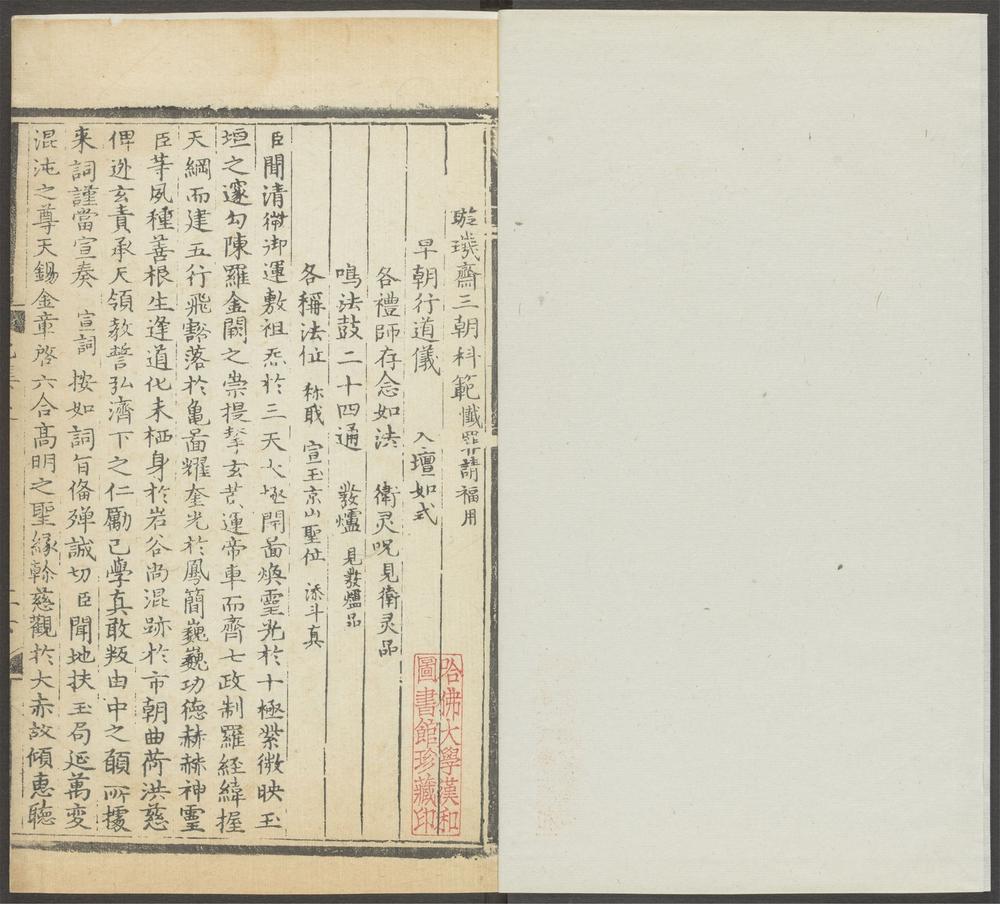 璇璣齋三朝科範懺罪請福用
早朝行道儀 入壇如式
各禮師存念如法 衛灵呪見衛灵品
鳴法鼓二十四通 發爐見發爐品
各稱法位 称職 宣玉京山聖位 添斗真
臣聞清微御運敷祖炁於三天火極開啚煥霊光於十極紫微映玉
垣之邃勾陳羅金闕之崇提挈玄黄運帝車而齊七政制羅経緯握
天綱而建五行飛豁落於亀啚耀奎光於鳳簡巍巍功德赫赫神霊
臣等夙種善根生逢道化未栖身於岩谷尚混跡於市朝曲荷洪慈
俾逊玄責承天領教誓弘濟下之仁勵己學真敢叛由中之願所據
來詞謹當宣奏 宣詞 按如詞旨俻殫誠切臣聞地扶玉局延萬变
混沌之尊天錫金章啓六合高明之聖緣幹慈觀於大赤故傾惠聽
哈佛大學漢和
圖書館珍藏印